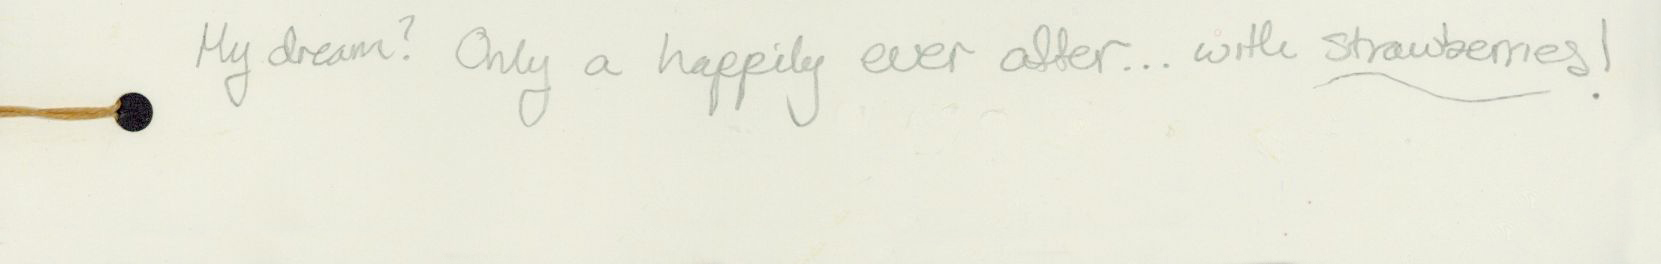 My dream? Only a happily ever after... with strawberries!